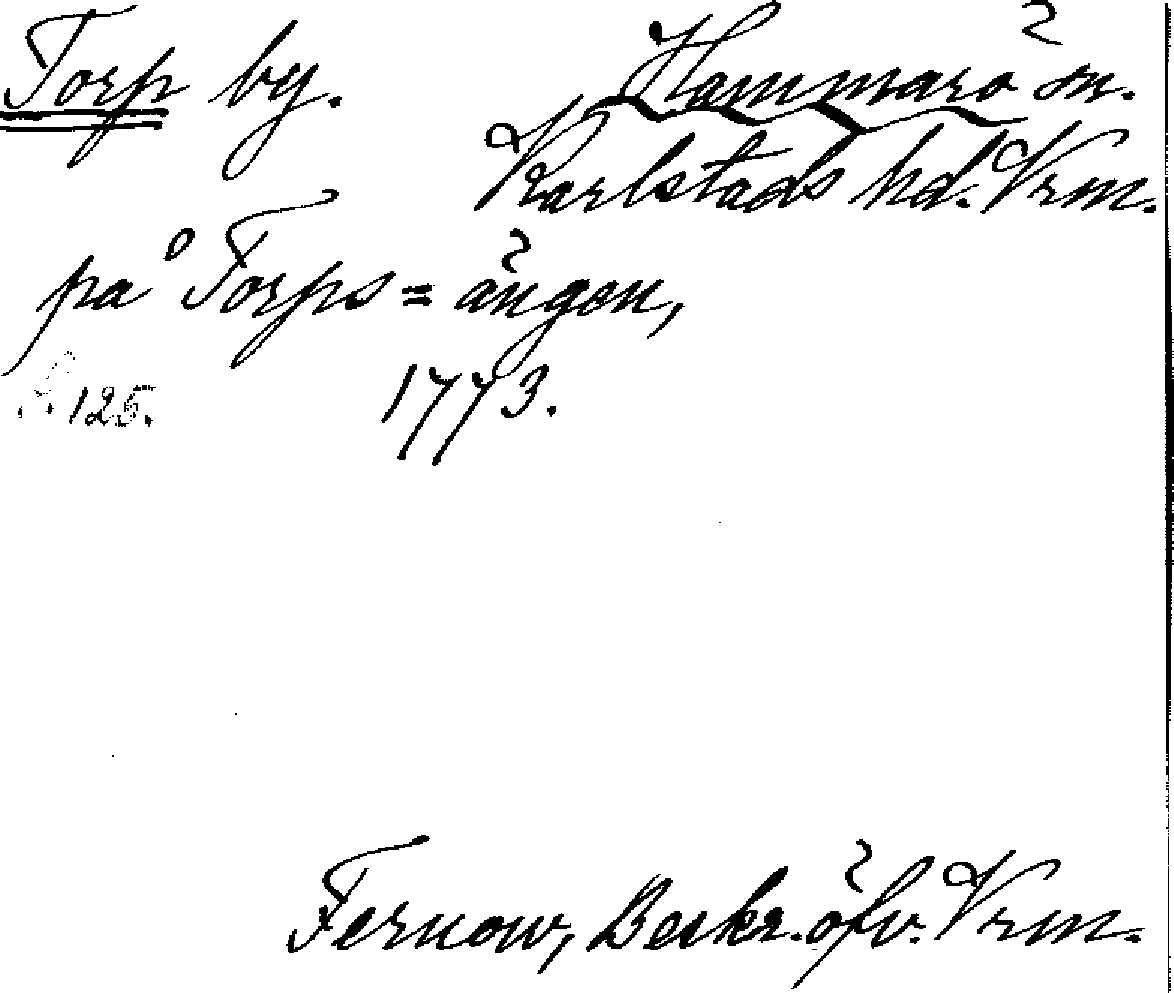 Torp by. Hammarö sn.
Karlstads hd. Vrm.
på Torps=ängen,
s. 125. 1773.
Fernow, Beskr. öfv. Vrm.